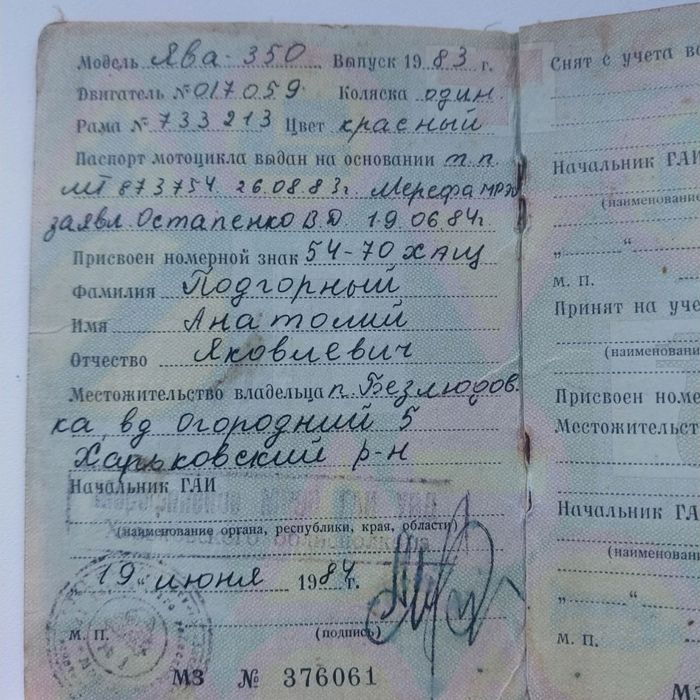 Модель Ява-350 Выпуск 1983 г.
Двигатель № 017059 Коляска один
Рама № 733213 Цвет красный
Паспорт мотоцикла выдан на основании т.п.
МТ 873754 26.08.83г Мерефа МРЭО
заявл Остапенко В.Д 19 06.84г
Присвоен номерной знак 54-70 ХАЩ
Фамилия Подгорный
Имя Анатолий
Отчество Яковлевич
Местожительство владельца п. Безлюдов
ка, вд Огородний 5
Харьковский р-н
Начальник ГАИ
(наименование органа, республики, края, области)
„19“ июня 1984 г.
м. п. (подпись)
МЗ № 376061
Снят с учета в
Начальник ГАИ
(наименование
„ “
м. п.
Принят на уче
(наименовани
Присвоен номе
Местожительст
Начальник ГА
(наименовани
„ “
м. п.
М